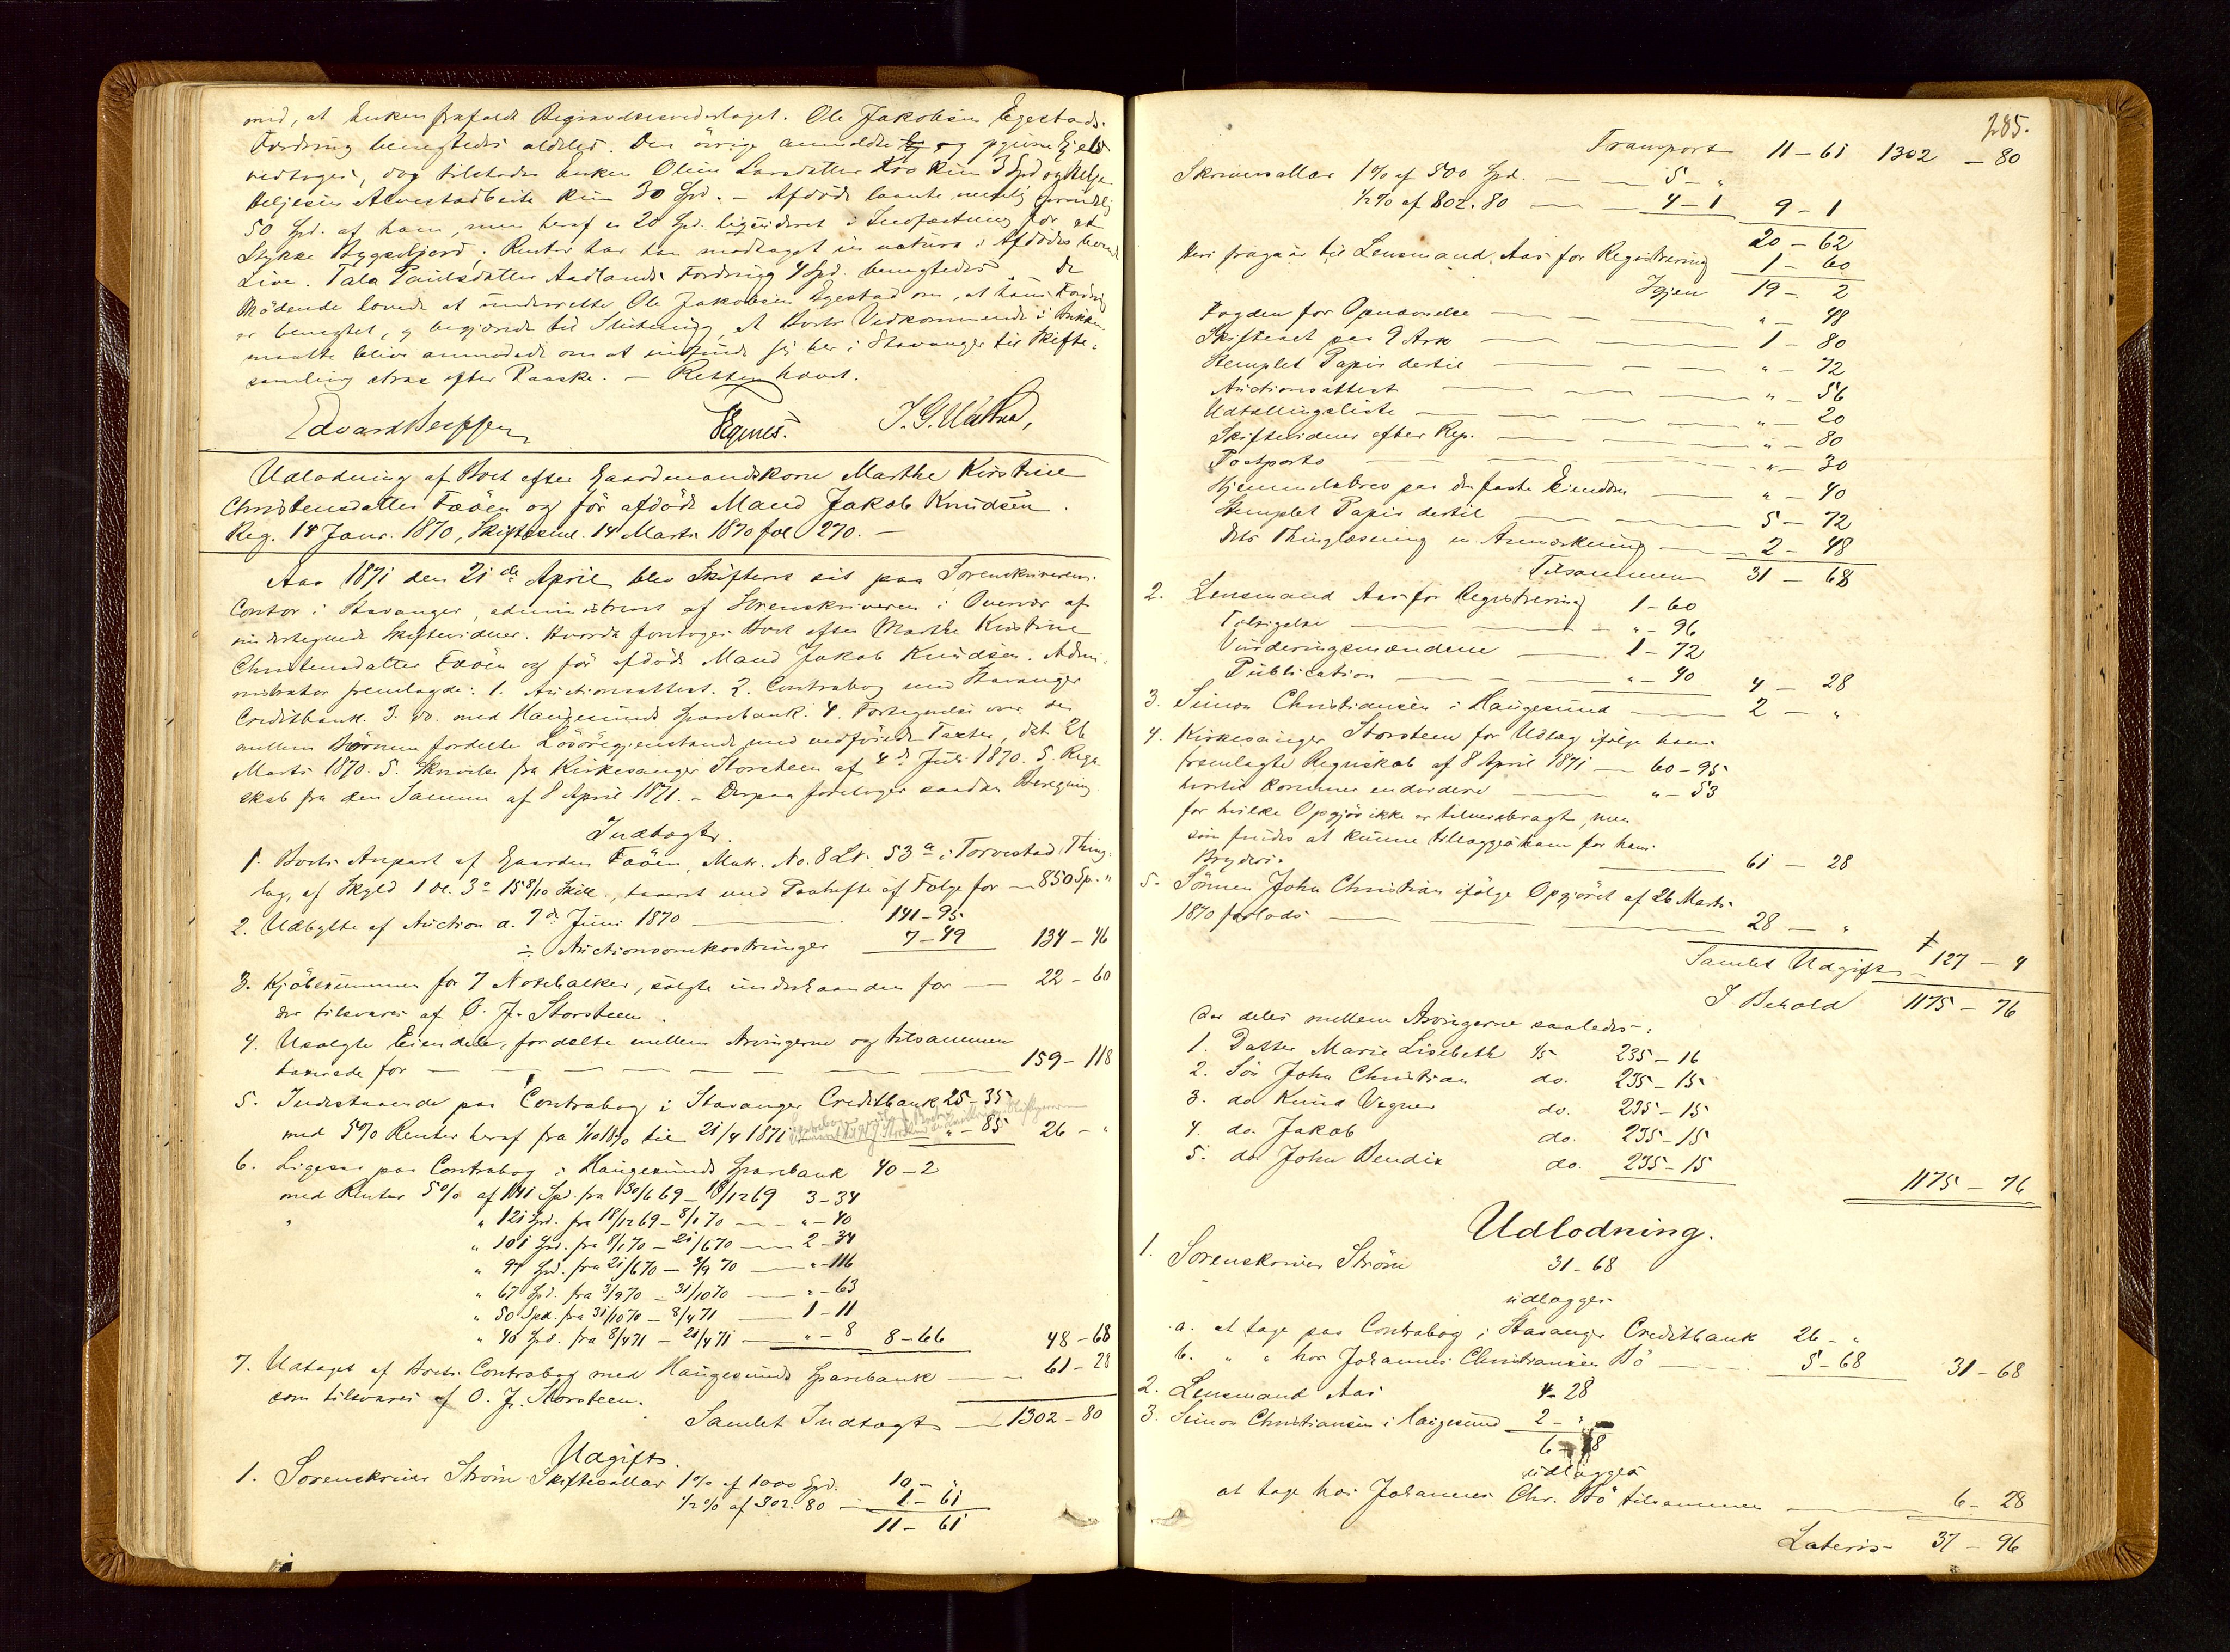 med, at Enken frafaldt Begravelsesvederlaget. Ole Jakobsen Egestads
Fordring benegtedes aldeles. Den övrige anmeldte og
vedtoges, dog tilstodes Enken Oline Larsdatter kun 3 Spd og Helje
Heljesen kun 30 Spd. – Afdöde laante nemlig
50 Spd. af ham, men heraf er 20 Spd. likvideret i for et
Stykke Bygseljord; Renter har han modtaget in natura i Afdödes
Live. Tala Paulsdatter Aadlands Fordring 4 Spd. benegtedes. De
Mödende lovede at underrette Ole Jakobsen Egestad om, at hans Fordring
er benegtet, og begjærede til Slutning, at Boets Vedkommende i
maatte blive anmodede om at indfinde sig her i Stavanger til Skifte-
samling strax efter Paaske. – Retten hævet.
Udlodning af Boet efter Gaardmandskone Marthe Kirstine
Christensdatter Faöen og för afdöde Mand Jakob Knudsen.
Reg. 14 Janr. 1870, Skiftesml. 14 Marts 1870 fol 270. –
Aar 1871 den 21de April blev Skifteret sat paa Sorenskriverens
Contor i Stavanger, administreret af Sorenskriveren i Overvær af
undertegnede Skiftevidner. Hvorda foretoges Boet efter Marthe Kirstine
Christensdatter Faöen og för afdöde Mand Jakob Knudsen. Admi-
nistrator fremlagde: 1. Auctionsattest. 2. Contrabog med Stavanger
Creditbank. 3. do. med Haugesunds Sparebank. 4. Fortegnelse over de
mellem Börnene fordelte Lösöregjenstande med vedföiede Taxter, dat. 26
Marts 1870. 5. Skrivelse fra Kirkesanger Storsteen af 4de Juli 1870. 5. Regn-
skab fra den Samme af 8 April 1871. – Derpaa foretoges saadan Beregning
Indtægt.
1. Boets Anpart af Gaarden Faöen, Matr. No. 8 Lt. 53a i Torvestad Thing-
lag, af Skyld 1 dl. 3o 15 8/10 Skill., taxeret med Paahefte af Følge for – 850 Sp. "
2. Udbytte af Auction d. 7de Juni 1870 141-95
÷ Auctionsomkostninger 7-49 134-46
3. Kjöbesummen for 7 Notebalker, solgte underhaanden for – 22-60
der tilsvares af O. J. Storsteen.
4. Usolgte Eiendele, fordelte mellem Arvingerne og tilsammen
taxerede for 159-118
5. Indestaaende paa Contrabog i Stavanger Creditbank 25-35
med 5% Renter heraf fra 1870 til 21/4 1871 "-85 26-"
6. Ligesaa paa Contrabog i Haugesunds Sparebank 40-2
med Renter 5% af 141 Spd. fra 30/6 69 – 18/12 69 3-34
" " 121 Spd. fra 18/12 69 – 8/1 70 "-40
" 101 Spd. fra 8/1 70 – 21/6 70 2-34
" 97 Spd. fra 21/6 70 – 3/9 70 "-116
" 67 Spd. fra 3/9 70 – 31/10 70 "-63
" 50 Spd. fra 31/10 70 – 8/4 71 1-11
" 46 Spd. fra 8/4 71 – 21/4 71 "-8 8-66 48-68
7. Udtaget af Boets Contrabog med Haugesunds Sparebank 61-28
som tilsvares af O. J. Storsteen.
Samlet Indtægt 1302-80
Udgift.
1. Sorenskriver Ström Skiftesallær 1% af 1000 Spd. 10-"
1/2% af 302.80 1-61
11-61
285.
Transport 11-61 1302-80
Skriversallær 1% af 500 Spd. 5-"
1/2% af 802.80 4-1 9-1
20-62
Heri fragaar til Lensmand Aas for Registrering 1-60
Igjen 19-2
Fogden for Opnævnelse "-48
Skifteact paa 9 Ark 1-80
Stemplet Papir dertil "-72
Auctionsattest "-56
Udtællingsliste "-20
Skiftevidner efter Reg. "-80
Postporto "-30
Hjemmelsbrev paa den faste Eiendom "-40
Stemplet Papir dertil 5-72
Dets Thinglæsning m. Anmærkning 2-48
Tilsammen 31-68
2. Lensmand Aas for Registrering 1-60
Tilsigelse "-96
Vurderingsmændene 1-72
Publication "-40 4-28
3. Simon Christiansen i Haugesund 2-"
4. Kirkesanger Storsteen for Udlæg ifölge hans
fremlagte Regnskab af 8 April 1871 60-95
hvortil kommer endvidere "-53
for hvilke Opgjör ikke er tilveiebragt, men
som findes at kunne tillægges ham for hans
Bryderi. 61-28
5. Sönnen John Christian ifölge Opgjöret af 26 Marts
1870 forlods 28-"
Samlet Udgift 127-4
I Behold 1175-76
Der deles mellem Arvingerne saaledes:
1. Datter Marie Lisebeth 1/5 235-16
2. Sön John Christian do. 235-15
3. do Knud Vegner do. 235-15
4. do. Jakob do. 235-15
5. do John Bendix do. 235-15
1175-76
Udlodning.
1. Sorenskriver Ström 31-68
udlægges
a. at tage paa Contrabog i Stavanger Creditbank 26-"
b. " " hos Johannes Christiansen Bö 5-68 31-68
2. Lensmand Aas 4-28
3. Simon Christiansen i Haugesund 2-"
6-28
udlægges
at tage hos Johannes Chr. Bö tilsammen 6-28
Lateris 37-96